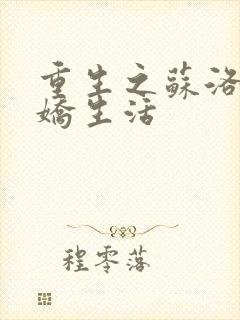 重生之蘇洛
嬌生活
程零落